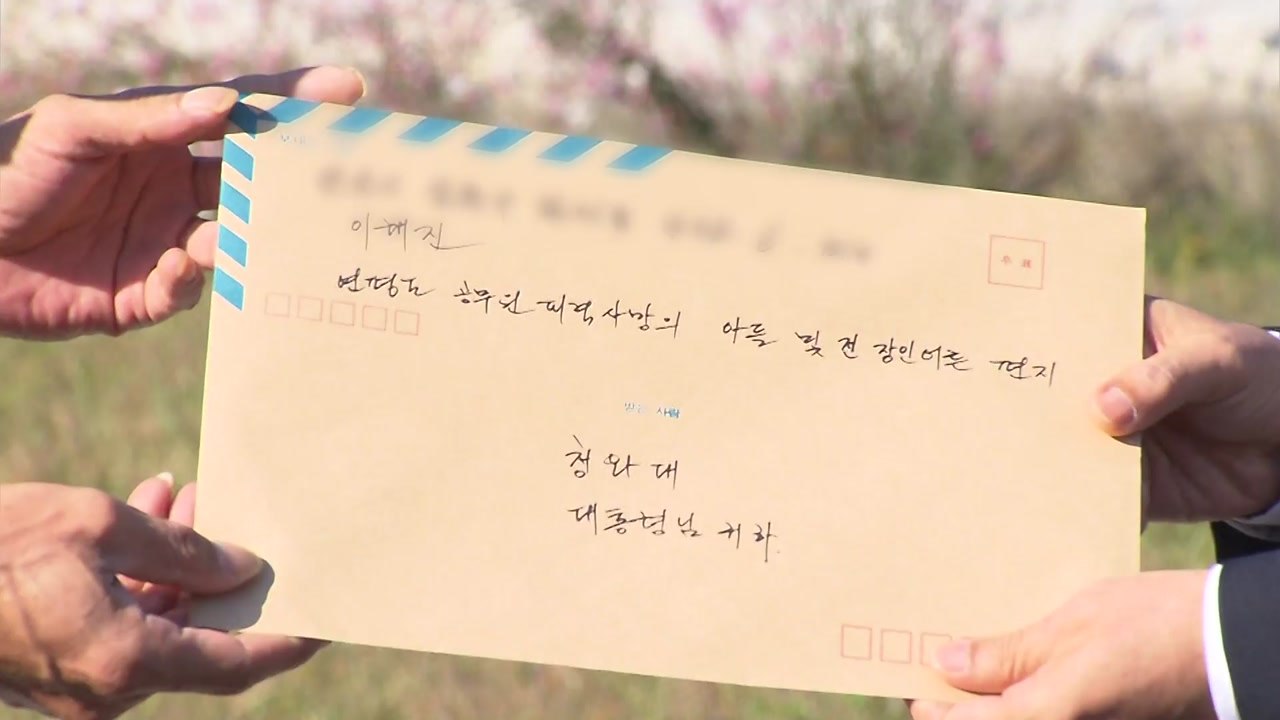 보내는
이해진
연평도 공무원 피격사망의 아들 및 전 장인어른 편지
우표
받는 사람
청와대
대통령님 귀하.